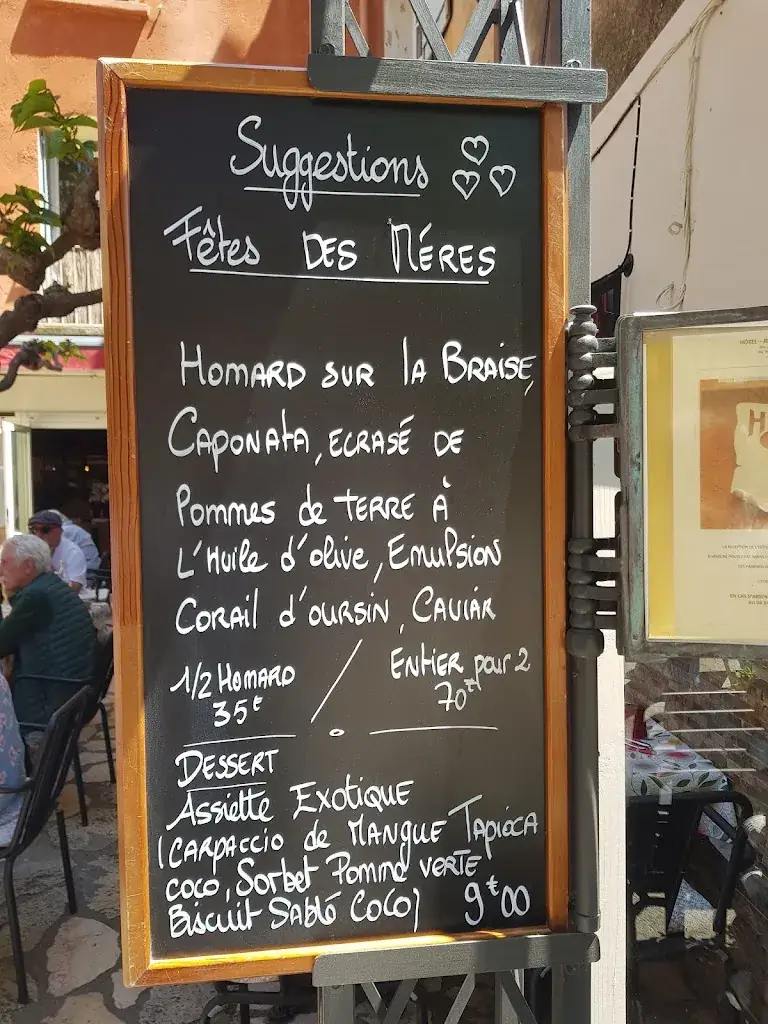 Suggestions
Fêtes DES MÉRES
HOMARD SUR LA BRAISE,
CAPONATA, ECRASÉ DE
POMMES de TERRE À
L'Huile d'olive, EMULSION
CORAIL d'OURSIN, CAVIAR
1/2 HOMARD / ENTIER pour 2
35€ 70€
DESSERT
Assiette EXOTIQUE
(CARPACCIO de MANGUE TAPIOCA
COCO, Sorbet Pomme VERTE
Biscuit SABLÉ COCO) 9€00